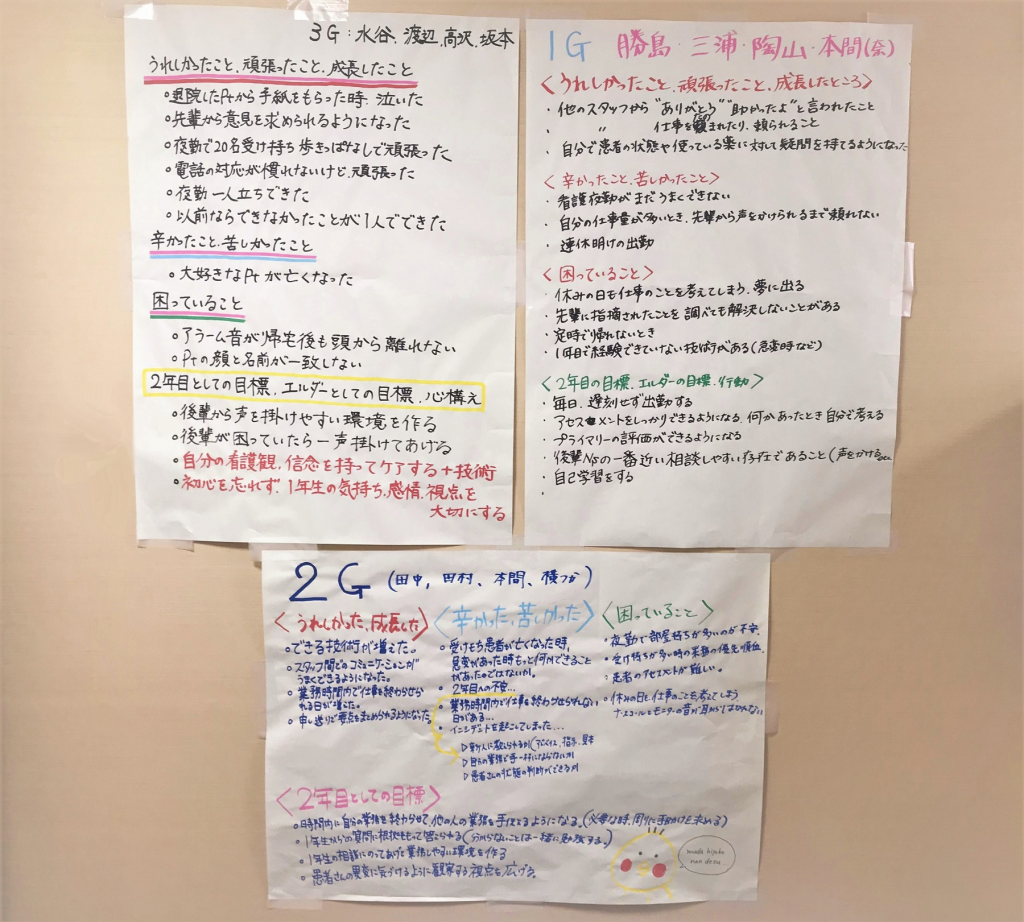 3G：水谷、渡辺、高沢、坂本
うれしかったこと、頑張ったこと、成長したこと
○退院したPtから手紙をもらった時、泣いた
○先輩から意見を求められるようになった
○夜勤で20名受け持ち歩きっぱなしで頑張った
○電話の対応が慣れないけど、頑張った
○夜勤一人立ちできた
○以前ならできなかったことが1人でできた
辛かったこと、苦しかったこと
○大好きなPtが亡くなった
困っていること
○アラーム音が帰宅後も頭から離れない
○Ptの顔と名前が一致しない
2年目としての目標、エルダーとしての目標、心構え
○後輩から声を掛けやすい環境を作る
○後輩が困っていたら一声掛けてあげる
○自分の看護観、信念を持ってケアする＋技術
○初心を忘れず、1年生の気持ち、感情、視点を
大切にする
1G 勝島・三浦・陶山・本間(奈)
<うれしかったこと、頑張ったこと、成長したところ>
・他のスタッフから"ありがとう""助かったよ"と言われたこと
・ 〃 仕事を頼まれたり、頼られること
・自分で患者の状態や使っている薬に対して疑問を持てるようになった
<辛かったこと、苦しかったこと>
・看護夜勤がまだうまくできない
・自分の仕事量が多いとき、先輩から声をかけられるまで頼れない
・連休明けの出勤
<困っていること>
・休みの日も仕事のことを考えてしまう、夢に出る
・先輩に指摘されたことを調べても解決しないことがある
・定時で帰れないとき
・1年目で経験できていない技術がある(急変時など)
<2年目の目標、エルダーの目標、行動>
・毎日、遅刻せず出勤する
・アセスメントをしっかりできるようになる、何かあったとき自分で考える
・プライマリーの評価ができるようになる
・後輩Nsの一番近い相談しやすい存在であること(声をかけるetc
・自己学習をする
・
2G (田中、田村、本間、横つか)
<うれしかった、成長した>
○できる技術が増えた。
○スタッフ間でのコミュニケーションが
うまくできるようになった。
○業務時間内で仕事を終わらせら
れる日が増えた。
○申し送りで要点をまとめられるようになった。
<辛かった、苦しかった>
○受けもち患者が亡くなった時、
急変があった時もっと何かできること
があったのではないか。
○2年目への不安…
○業務時間内で仕事を終わらせられない
日がある…
○インシデントを起こしてしまった…
▷新人に教えられるか(アドバイス、指示、見本
▷自分の業務で手一杯にならないか
▷患者さんの状態の判断ができるか
<困っていること>
○夜勤で部屋持ちが多いのが不安。
○受け持ちが多い時の業務の優先順位。
○患者のアセスメントが難しい。
○休みの日も仕事のことを考えてしまう
ナースコールとモニターの音が耳からはなれない
<2年目としての目標>
○時間内に自分の業務を終わらせて、他の人の業務を手伝えるようになる。(必要な時、周りに手助けを求める)
○1年生からの質問に根拠をもって答えられる(分からないことは一緒に勉強する。)
○1年生の相談にのってあげて業務しやすい環境を作る
○患者さんの異変に気づけるように観察する視点を広げる。
muada hiyoko
nan desu...